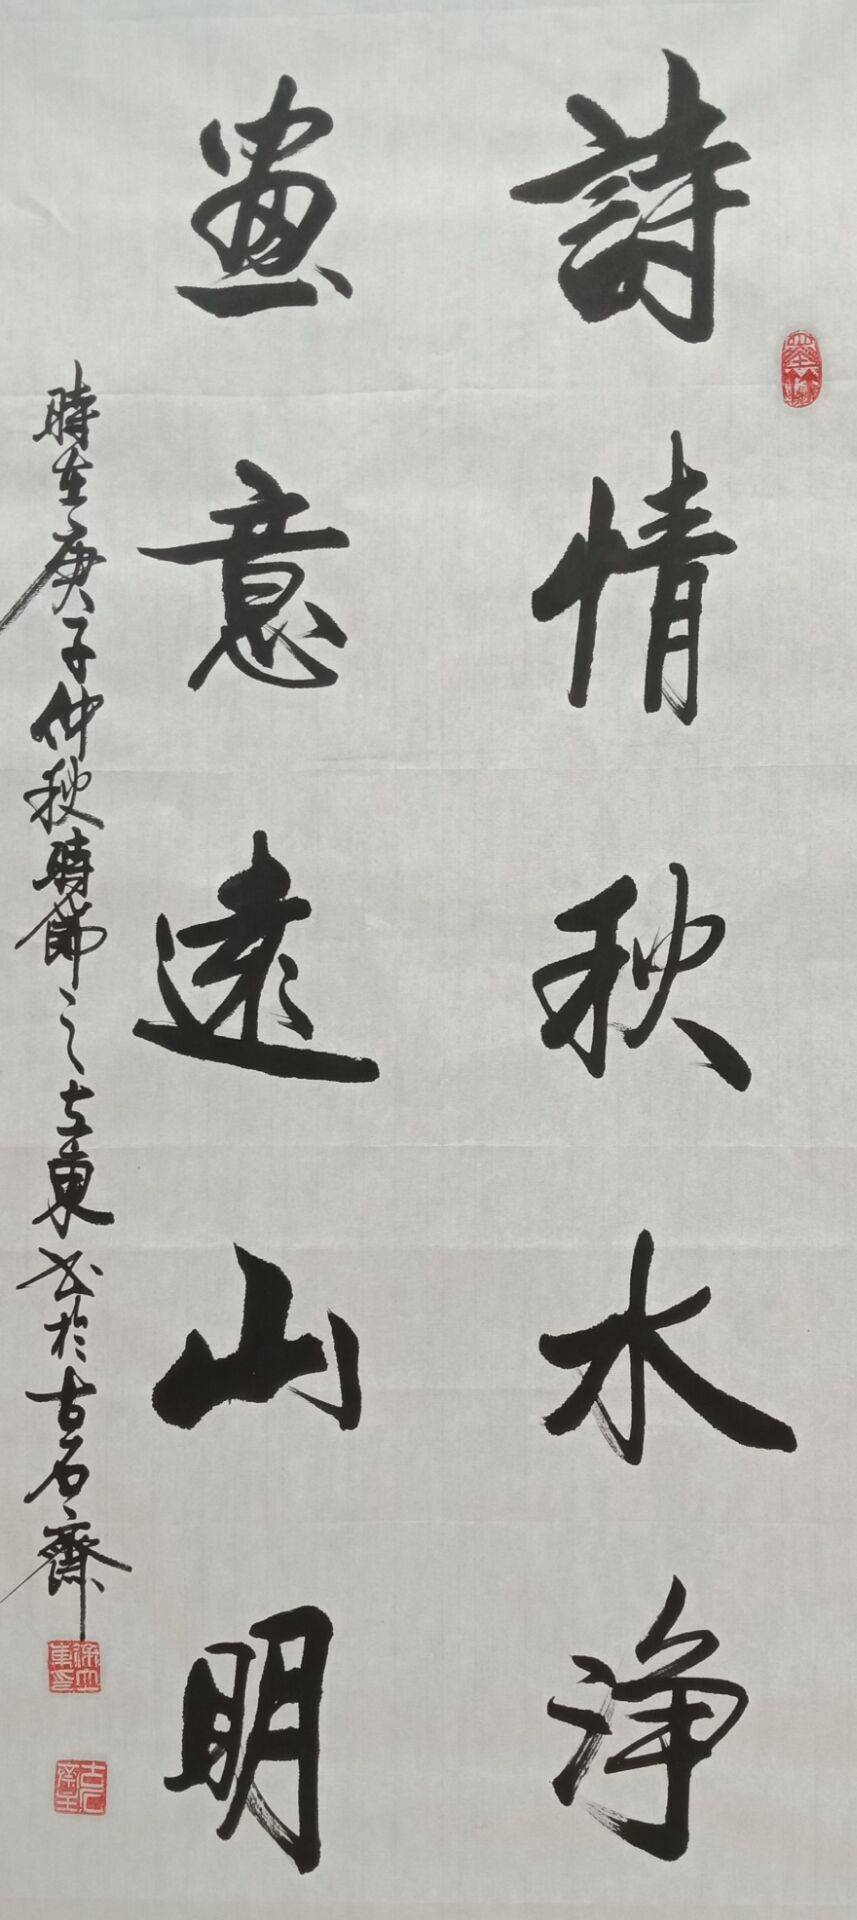 詩情秋水浄
畫意遠山明
時在庚子仲秋時節之立東书於古石齋